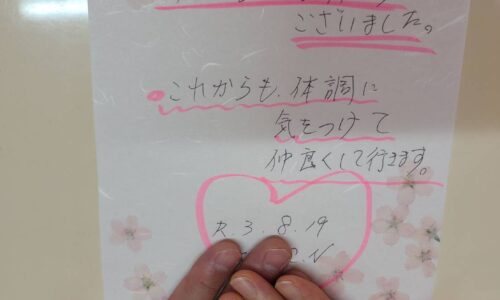 ございました。
これからも、体調に
気をつけて
仲良くして行きます。
R.3.8.19